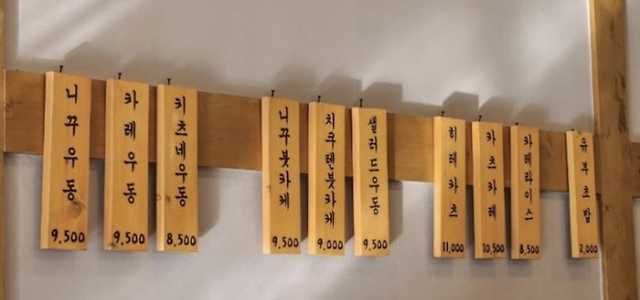 니꾸우동
9,500
카레우동
9,500
키츠네우동
8,500
니꾸붓카케
9,500
치쿠텐붓카케
9,000
샐러드우동
9,500
히레카츠
11,000
카츠카레
10,500
카레라이스
8,500
유부초밥
2,000